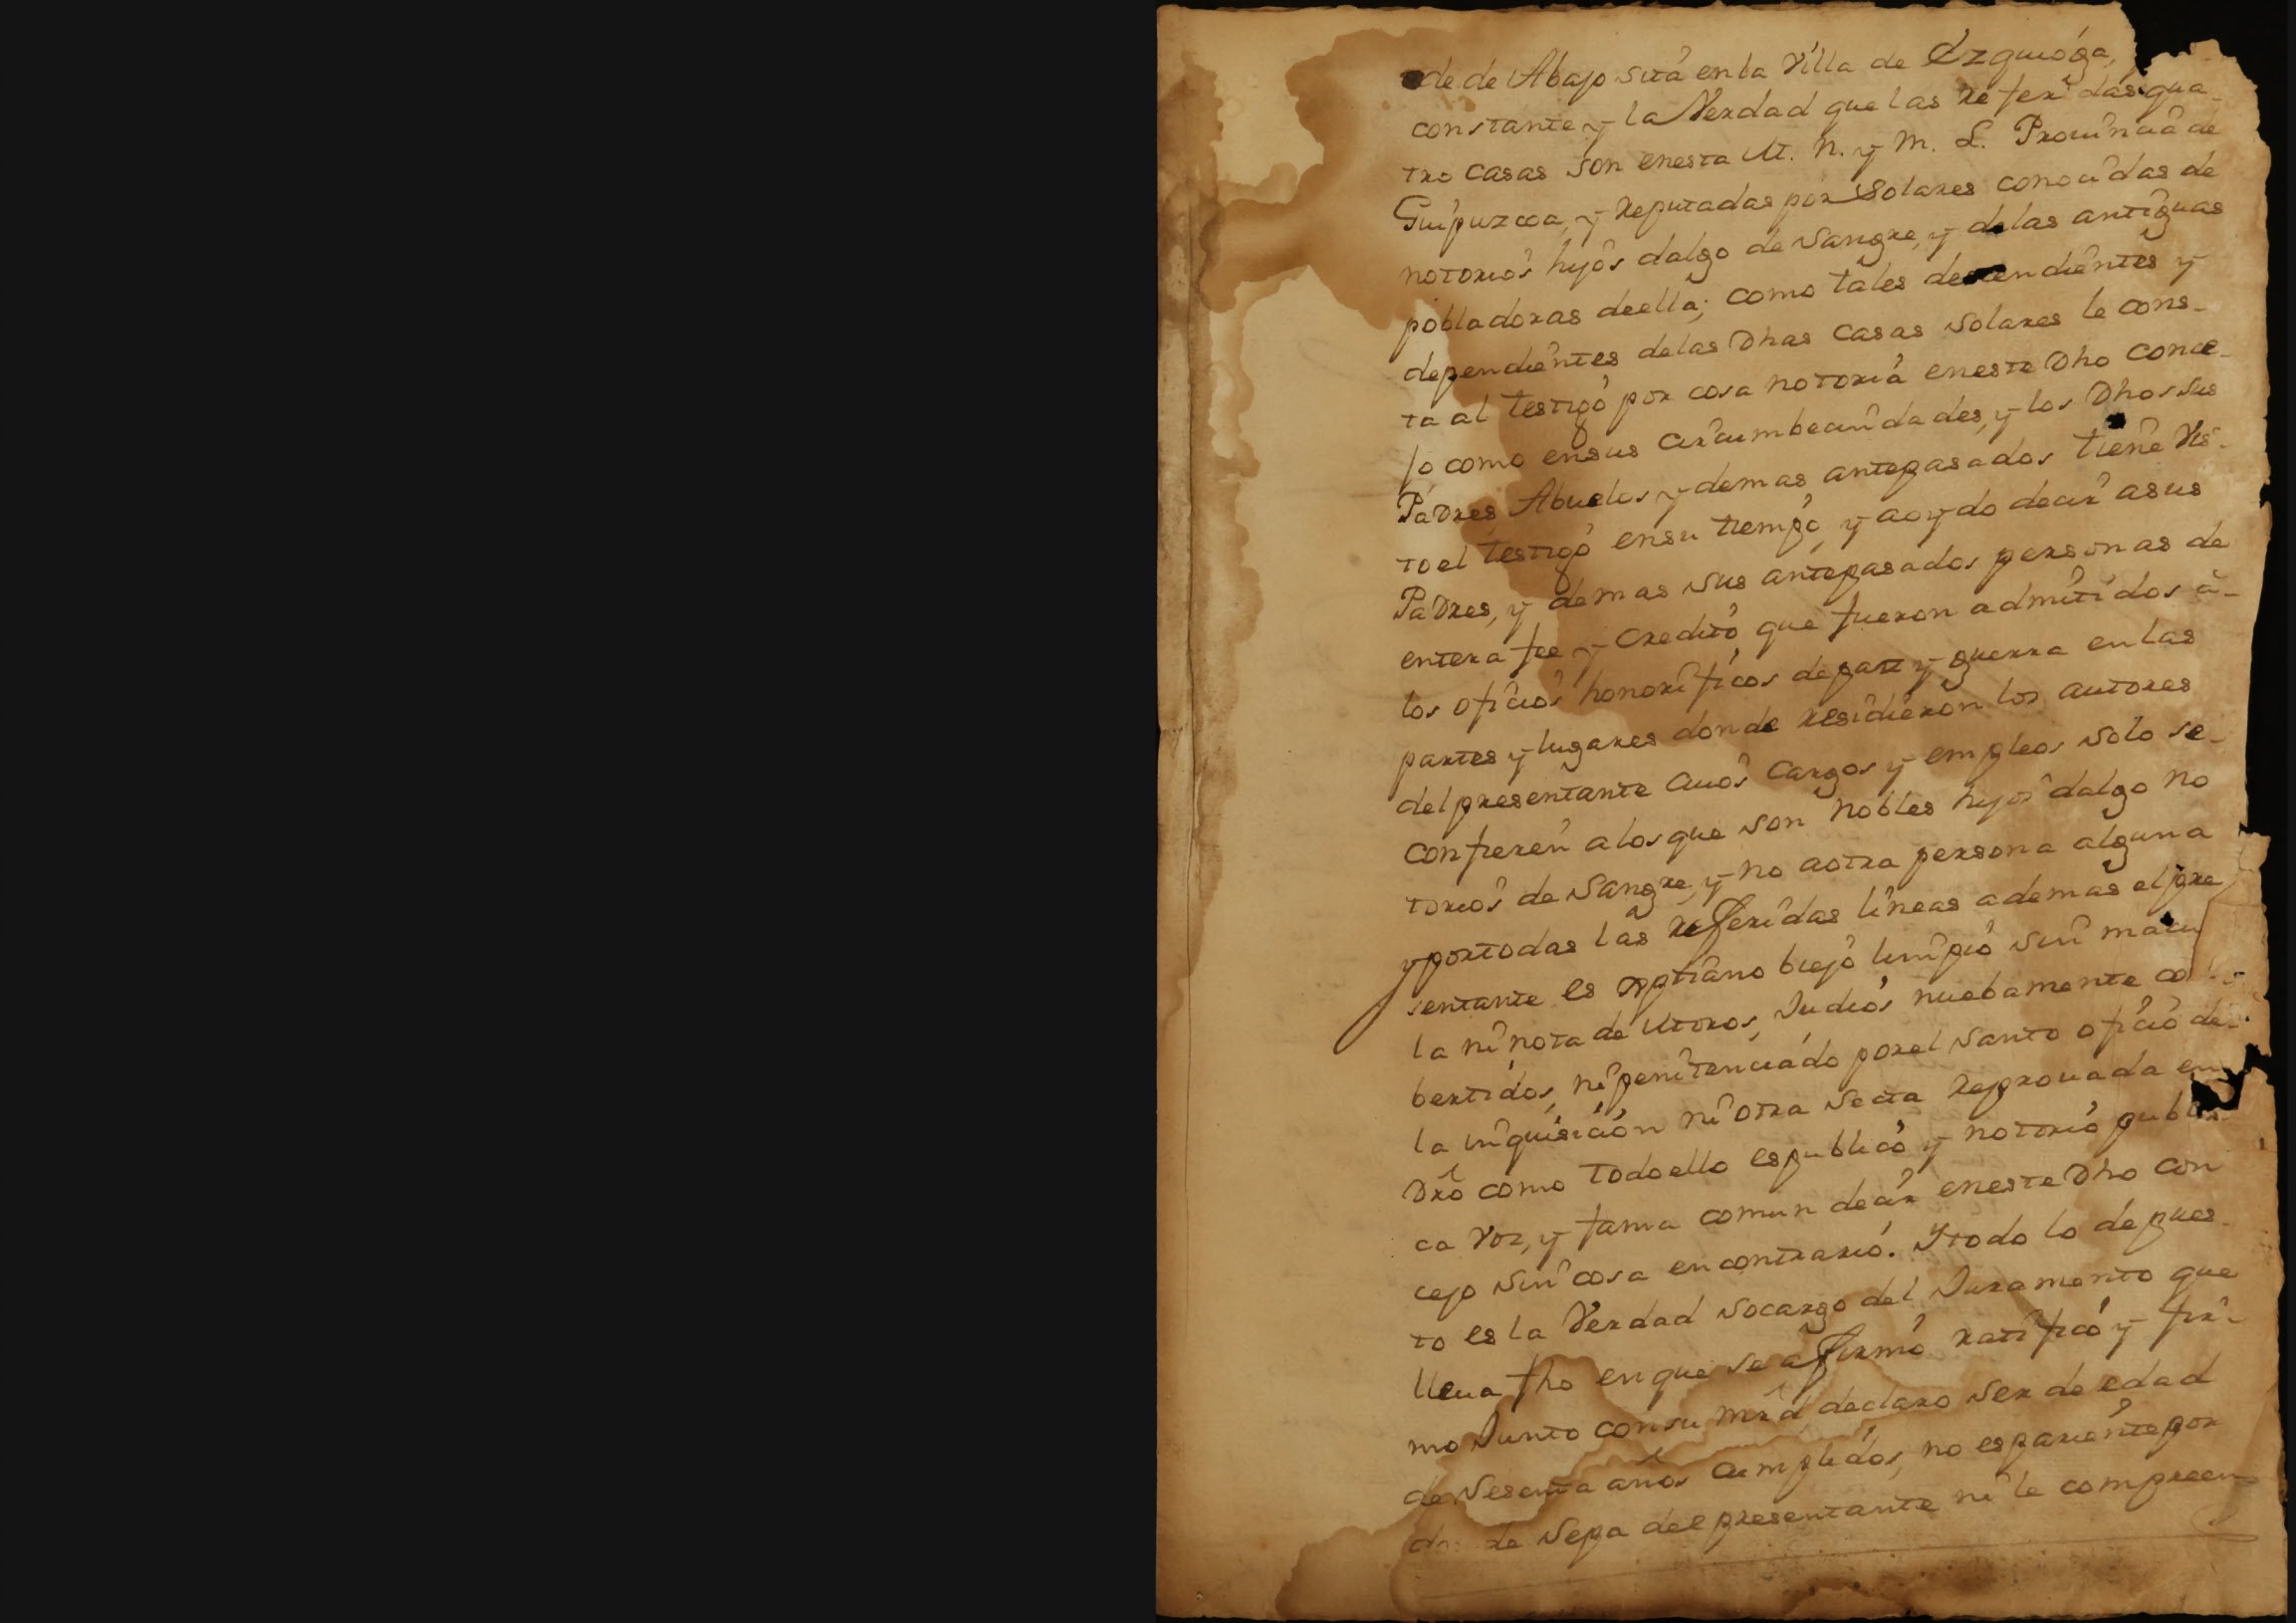 de de Abajo sita en la Villa de Ezquióga,
constante y la Verdad que las referidas qua-
tro casas son enesta M. N. y M. L. Provincia de
Guipuzcoa, y Reputadas por Solares conocidas de
notorios hijos dalgo de Sangre, y delas antiguas
pobladoras deella; como tales descendientes y
dependientes delas Dhas Casas Solares le cons-
ta al testigo por cosa notoria eneste Dho Conce-
jo como ensus circumbecindades, y los Dhos sus
Padres Abuelos y demas antepasados tiene Vis-
to el testigo ensu tiempo, y aoydo decir asus
Padres, y demas sus antepasados personas de
entera fee y Credito que fueron admitidos á-
los oficios honorificos depaz y guerra enlas
partes y lugares donde residieron los autores
del presentante Cuios Cargos y empleos solo se-
confieren alosque son Nobles hijos dalgo no
torios de Sangre, y no aotra persona alguna
yportodas las referidas lineas ademas el pre
sentante es xptiano biejo limpio sin macu
la ni nota de Moros, Judios nuebamente co
bertidos, ni penitenciado porel Santo oficio de-
la inquisición ni otra Secta Reprouada en
Dro como todoello espublico y notorio publi-
ca Voz, y fama comun decir eneste Dho Con
cejo sin cosa encontrario. Ytodo lo depues-
to es la Verdad Socargo del Juramento que
lleua fho enque se afirmó ratificó y fir-
mo Junto consu mrd, declaro ser de edad
de Sesenta años Cumplidos, no espariente por
de Sepa del presentante ni le compreen